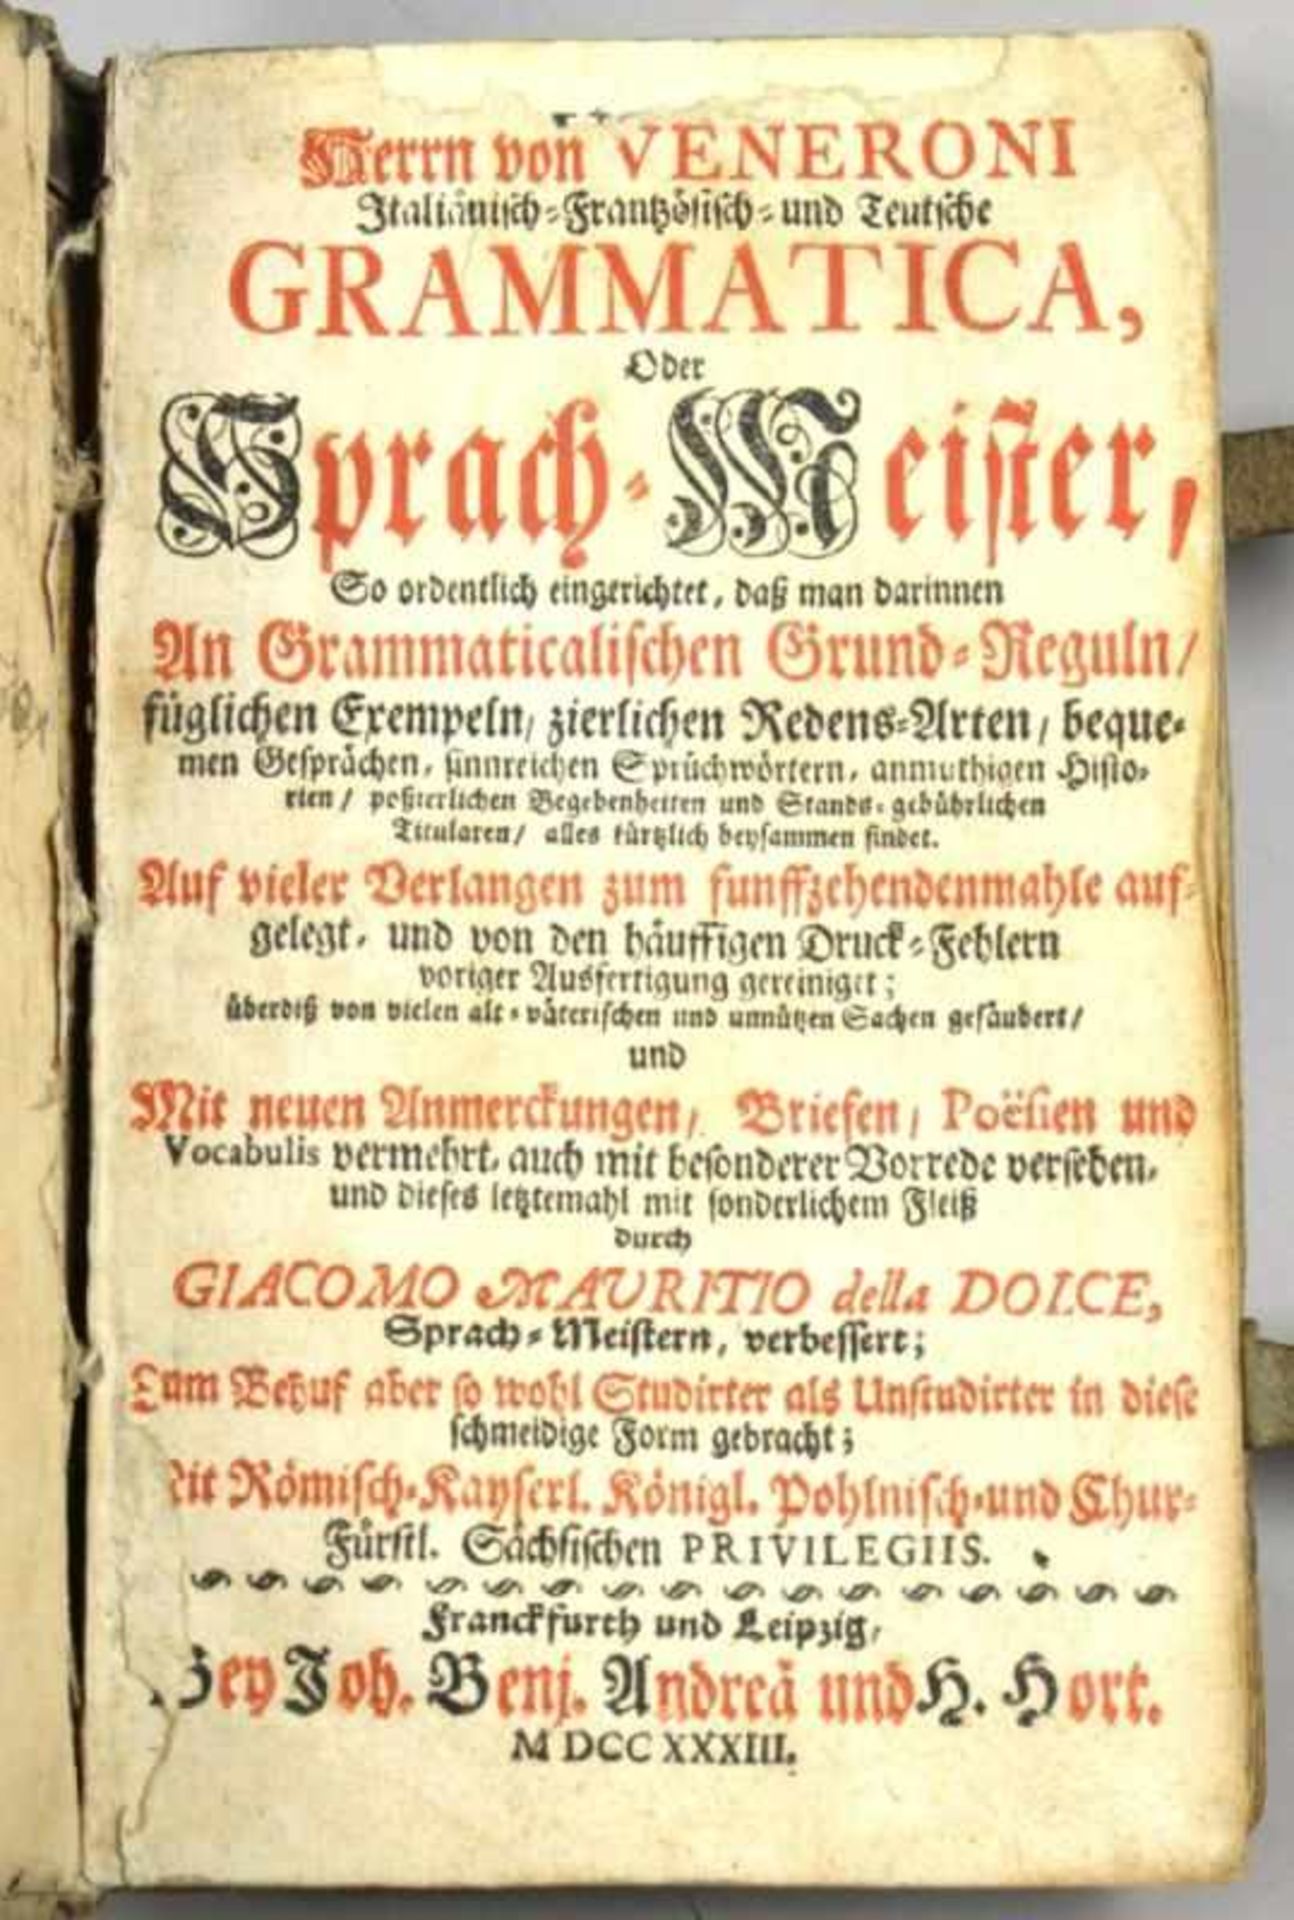 Herrn von VENERONI
Italiänisch-Frantzösisch-und Teutsche
GRAMMATICA,
Oder
Sprach-Meister,
So ordentlich eingerichtet, daß man darinnen
An Grammaticalischen Grund-Reguln/
füglichen Exempeln/ zierlichen Redens-Arten/ beque-
men Gesprächen, sinnreichen Sprüchwörtern, anmuthigen Histo-
rien/ poßierlichen Begebenheiten und Stands-gebührlichen
Titularen/ alles kürtzlich beysammen findet.
Auf vieler Verlangen zum funffzehendenmahle auf-
gelegt, und von den häuffigen Druck-Fehlern
voriger Ausfertigung gereiniget;
überdiß von vielen alt-väterischen und unnützen Sachen gesäubert/
und
Mit neuen Anmerckungen/ Briefen/ Poësien und
Vocabulis vermehrt, auch mit besonderer Vorrede versehen,
und dieses letztemahl mit sonderlichem Fleiß
durch
GIACOMO MAURITIO della DOLCE,
Sprach-Meistern, verbessert;
Zum Behuf aber so wohl Studirter als Unstudirter in diese
schmeidige Form gebracht;
Mit Römisch-Kayserl. Königl. Pohlnisch-und Chur-
Fürstl. Sächsischen PRIVILEGIIS.
Franckfurth und Leipzig,
Bey Joh. Benj. Andreä und H. Hort.
M DCC XXXIII.